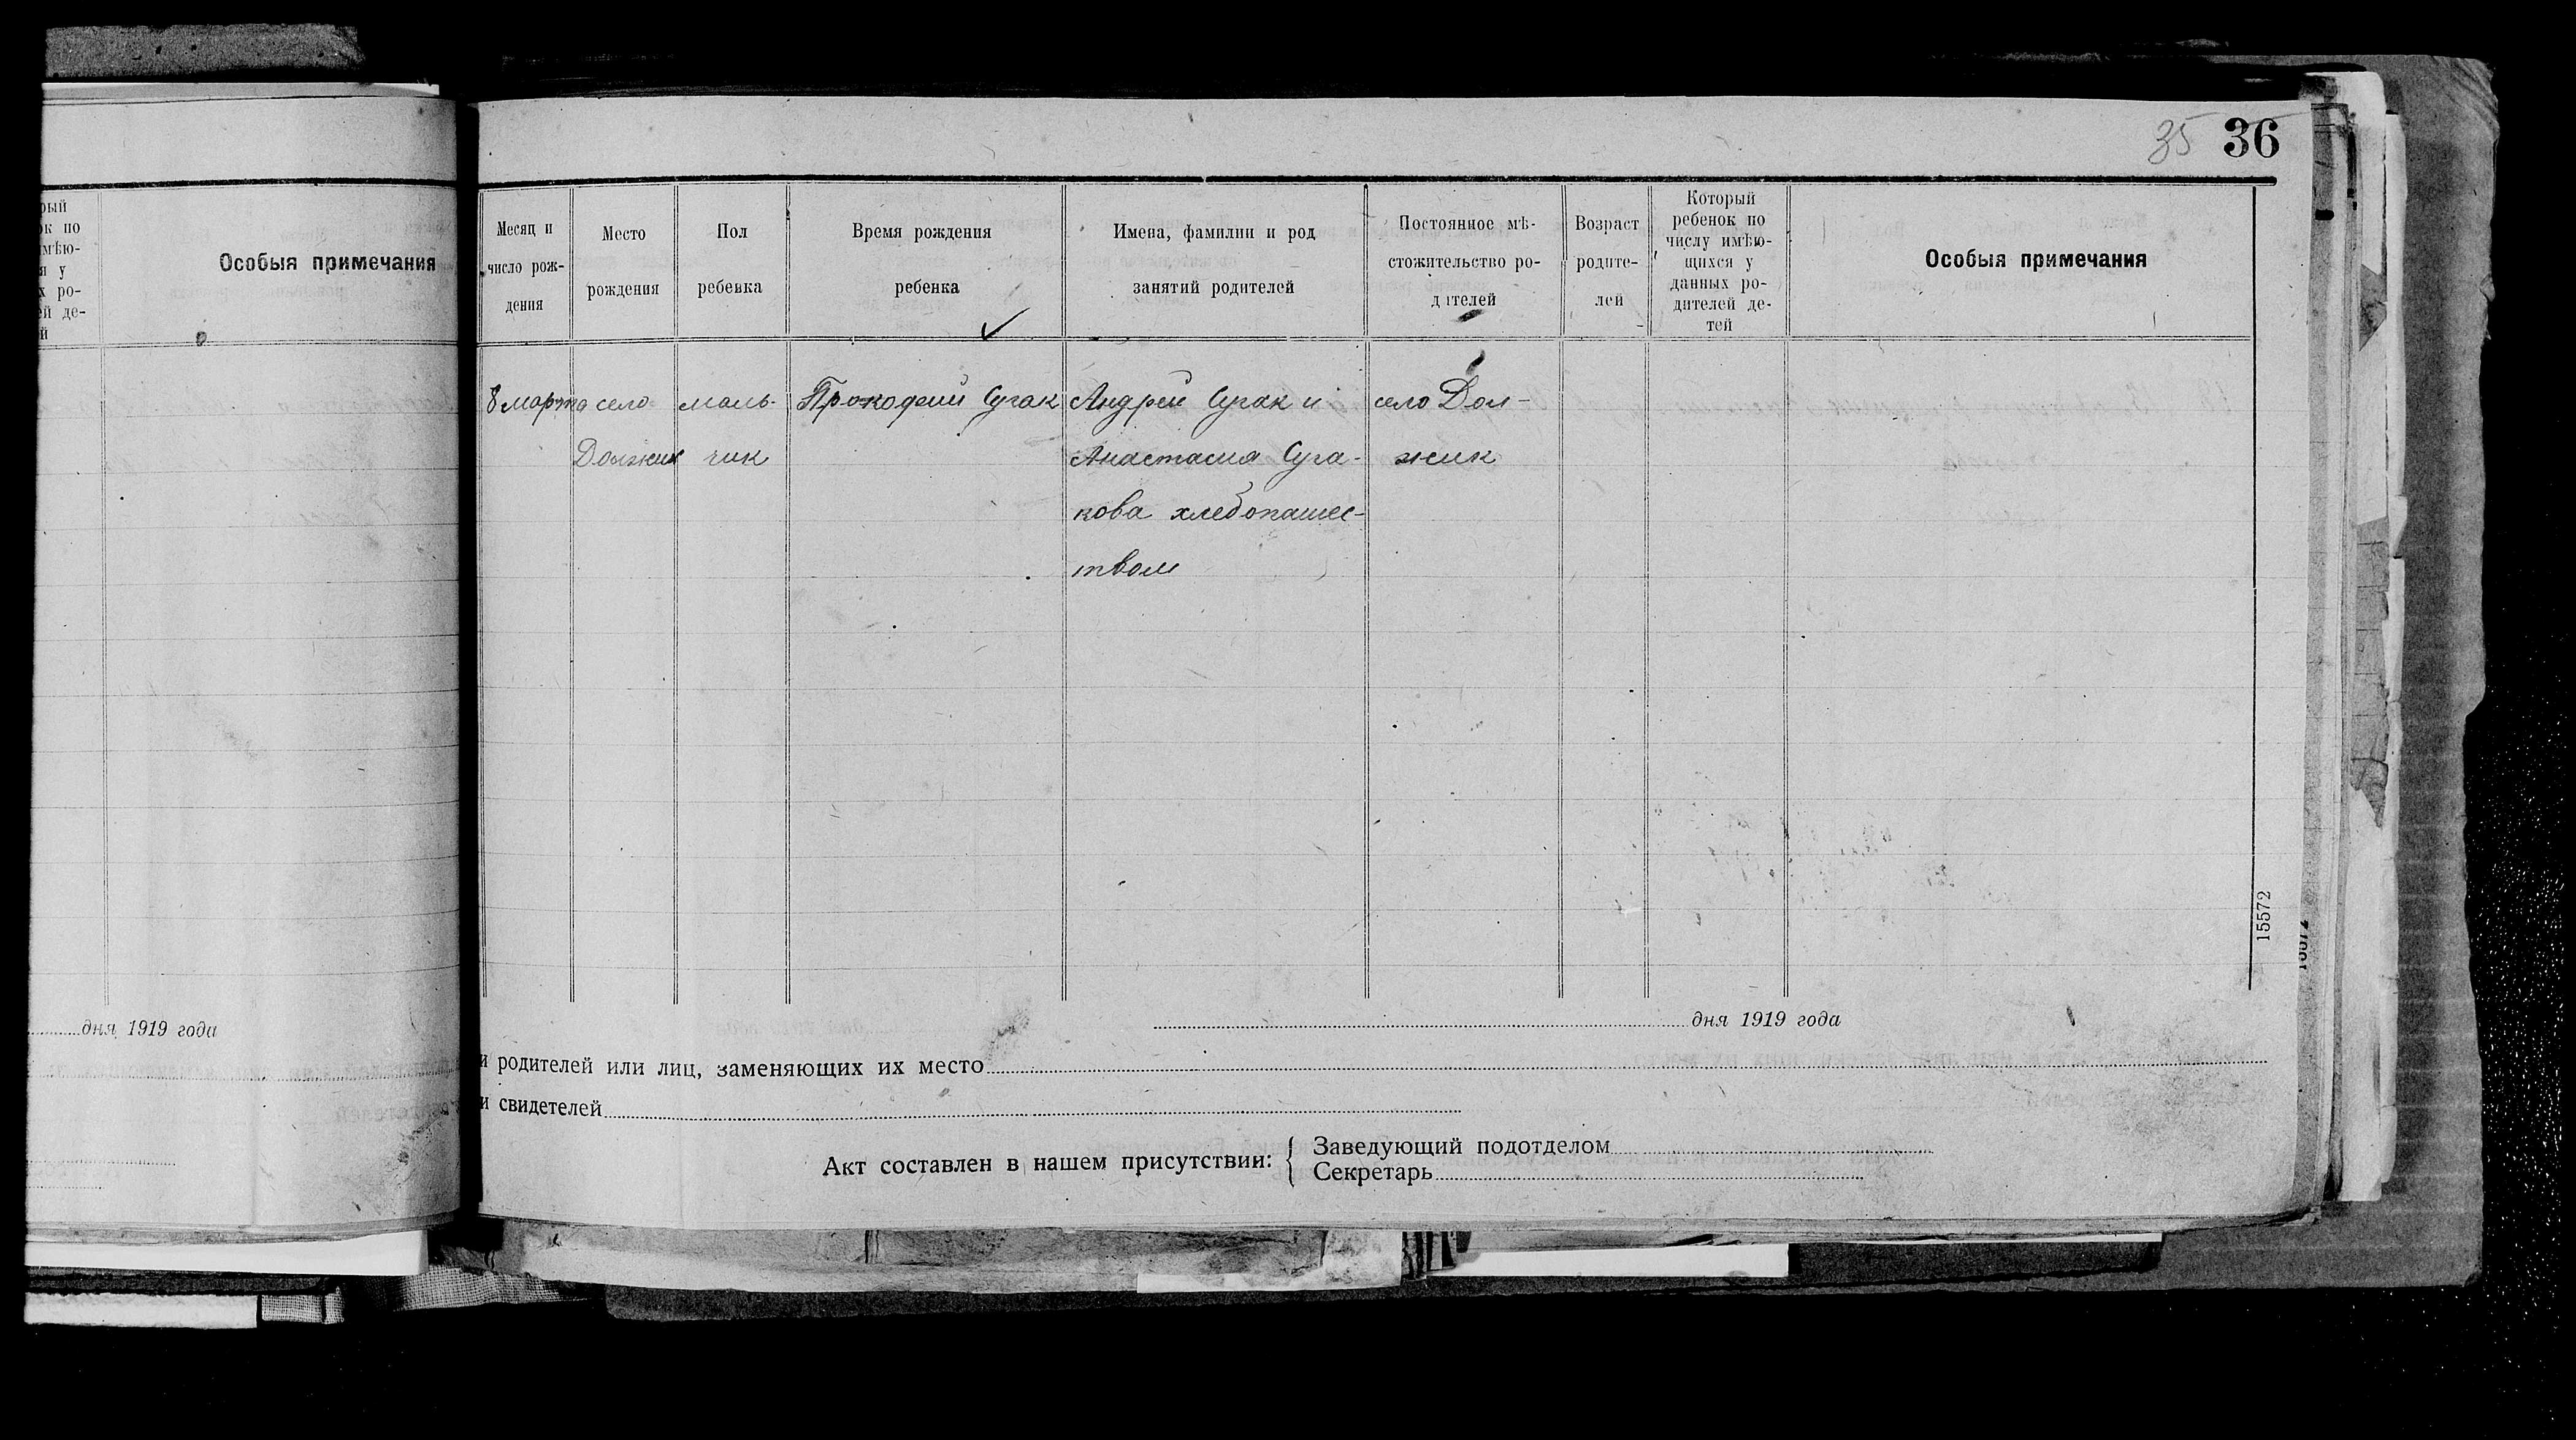 35 36
рый
ок по
имѣю-
я у
х ро-
ей де-
й
Особыя примечания
дня 1919 года
Месяц и
число рож-
дения
Место
рождения
Пол
ребенка
Время рождения
ребенка
Имена, фамилии и род
занятий родителей
Постоянное мѣ-
стожительство ро-
дителей
Возраст
родите-
лей
Который
ребенок по
числу имѣю-
щихся у
данных ро-
дителей де-
тей
Особыя примечания
8 марта
село
Должик
маль-
чик
Прокофий Сугак
Андрей Сугак и
Анастасия Суга-
кова хлебопашес-
твом
село Дол-
жик
15572
дня 1919 года
и родителей или лиц, заменяющих их место
и свидетелей
Акт составлен в нашем присутствии:
Заведующий подотделом
Секретарь